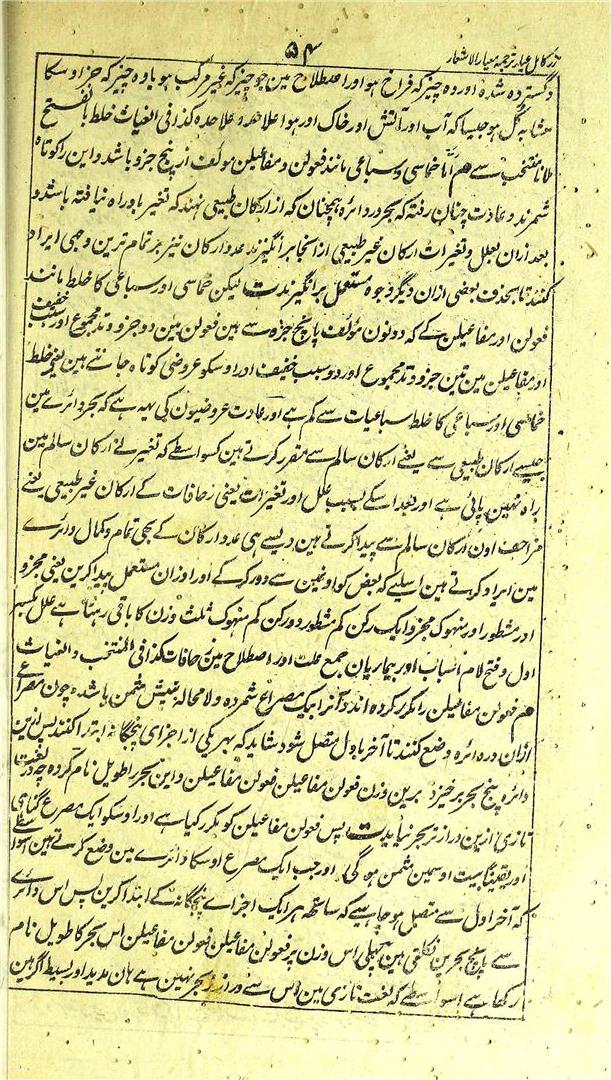 زر کامل عیار ترجمہ معیار الاشعار
۵۴
و گستردہ شدہ اور وہ چیز کہ فراخ ہو اور اصطلاح مین جو چیز کہ غیر مرکب ہو یا وہ چیز کہ جز اوسکا
مشابہ کل ہو جیسا کہ آب اور آتش اور خاک اور ہوا علاحدہ علاحدہ کذا فی الغیاث خلط بالفتح
ملانا منتخب سے هم اما خماسی و سباعی مانند فعولن و مفاعیلن مولف از پنج جزو باشد و این را کوتاہ
شمرند و عادت چنان رفتہ کہ بحر در دائرہ ہمچنان کہ از ارکان طبیعی نہند کہ تغیر باو راہ نیافتہ باشد و
بعد ازان بعلل و تغیرات ارکان غیر طبیعی از انجا برانگیزند عدد ارکان نیز بر تمام ترین وجہی ایراد
کنند تا بحذف بعضی ازان دیگر وجوہ مستعمل برانگیزند ت لیکن خماسی اور سباعی کا خلط مانند
فعولن اور مفاعیلن کے کہ دونون مؤلف پانچ جزو سے ہین فعولن مین دو جزو وتد مجموع اور سبب خفیف
اور مفاعیلن مین تین جزو وتد مجموع اور دو سبب خفیف اور اوسکو عروضی کوتاہ جانتے ہین یعنی خلط
خماسی اور سباعی کا خلط سباعیات سے کم ہے اور عادت عروضیون کی یہہ ہے کہ بحر دائرے مین
جیسے ارکان طبیعی سے یعنے ارکان سالم سے مقرر کرتے ہین کسواسطے کہ تغیر نے ارکان سالم مین
راہ نہین پائی ہے اور بعد اسکے بسبب علل اور تغیرات یعنی زحافات کے ارکان غیر طبیعی یعنے
مزاحف اون ارکان سالم سے پیدا کرتے ہین ویسے ہی عدد ارکان کے بھی تمام و کمال دائرے
مین ایراد کرتے ہین اسلیے کہ بعض کو اونمین سے دور کر کے اور اوزان مستعمل پیدا کرین یعنی مجزو
اور مشطور اور منہوک مجزو ایک رکن کم مشطور دو رکن کم منہوک ثلث وزن کا باقی رہنا ہے علل بکسر
اول و فتح لام اسباب اور بیماریان جمع علت اور اصطلاح مین زحافات کذا فی المنتخب و الغیاث
هم فعولن مفاعیلن را مکرر کردہ اند و آنرا یک مصراع شمردہ و لا محالہ بیتش مثمن باشد و چون مصراعے
ازان در دائرہ وضع کنند تا آخر باول متصل شود شاید کہ بہریکی از اجزای پنجگانہ ابتدا کنند پس ازین
دائرہ پنج بحر برخیزد برین وزن فعولن مفاعیلن فعولن مفاعیلن و این بحر را طویل نام کردہ چہ در لغت
تازی ازین دراز تر بحر نیامد ت پس فعولن مفاعیلن کو مکرر کیا ہے اور اوسکو ایک مصرع گنا ہے
اور یقینا بیت اوسمین مثمن ہوگی اور جب ایک مصرع اوسکا دائرے مین وضع کرتے ہین اسواسطے
کہ آخر اول سے متصل ہو چاہیے کہ ساتھہ ہر ایک اجزاے پنجگانہ کے ابتدا کرین پس اس دائرے
سے پانچ بحرین نکلتی ہین پہلی اس وزن پر فعولن مفاعیلن فعولن مفاعیلن اس بحر کا طویل نام
رکھا ہے اسواسطے کہ لغت تازی مین اس سے دراز تر بحر نہین ہے ہان مدید اور بسیط اگر مین